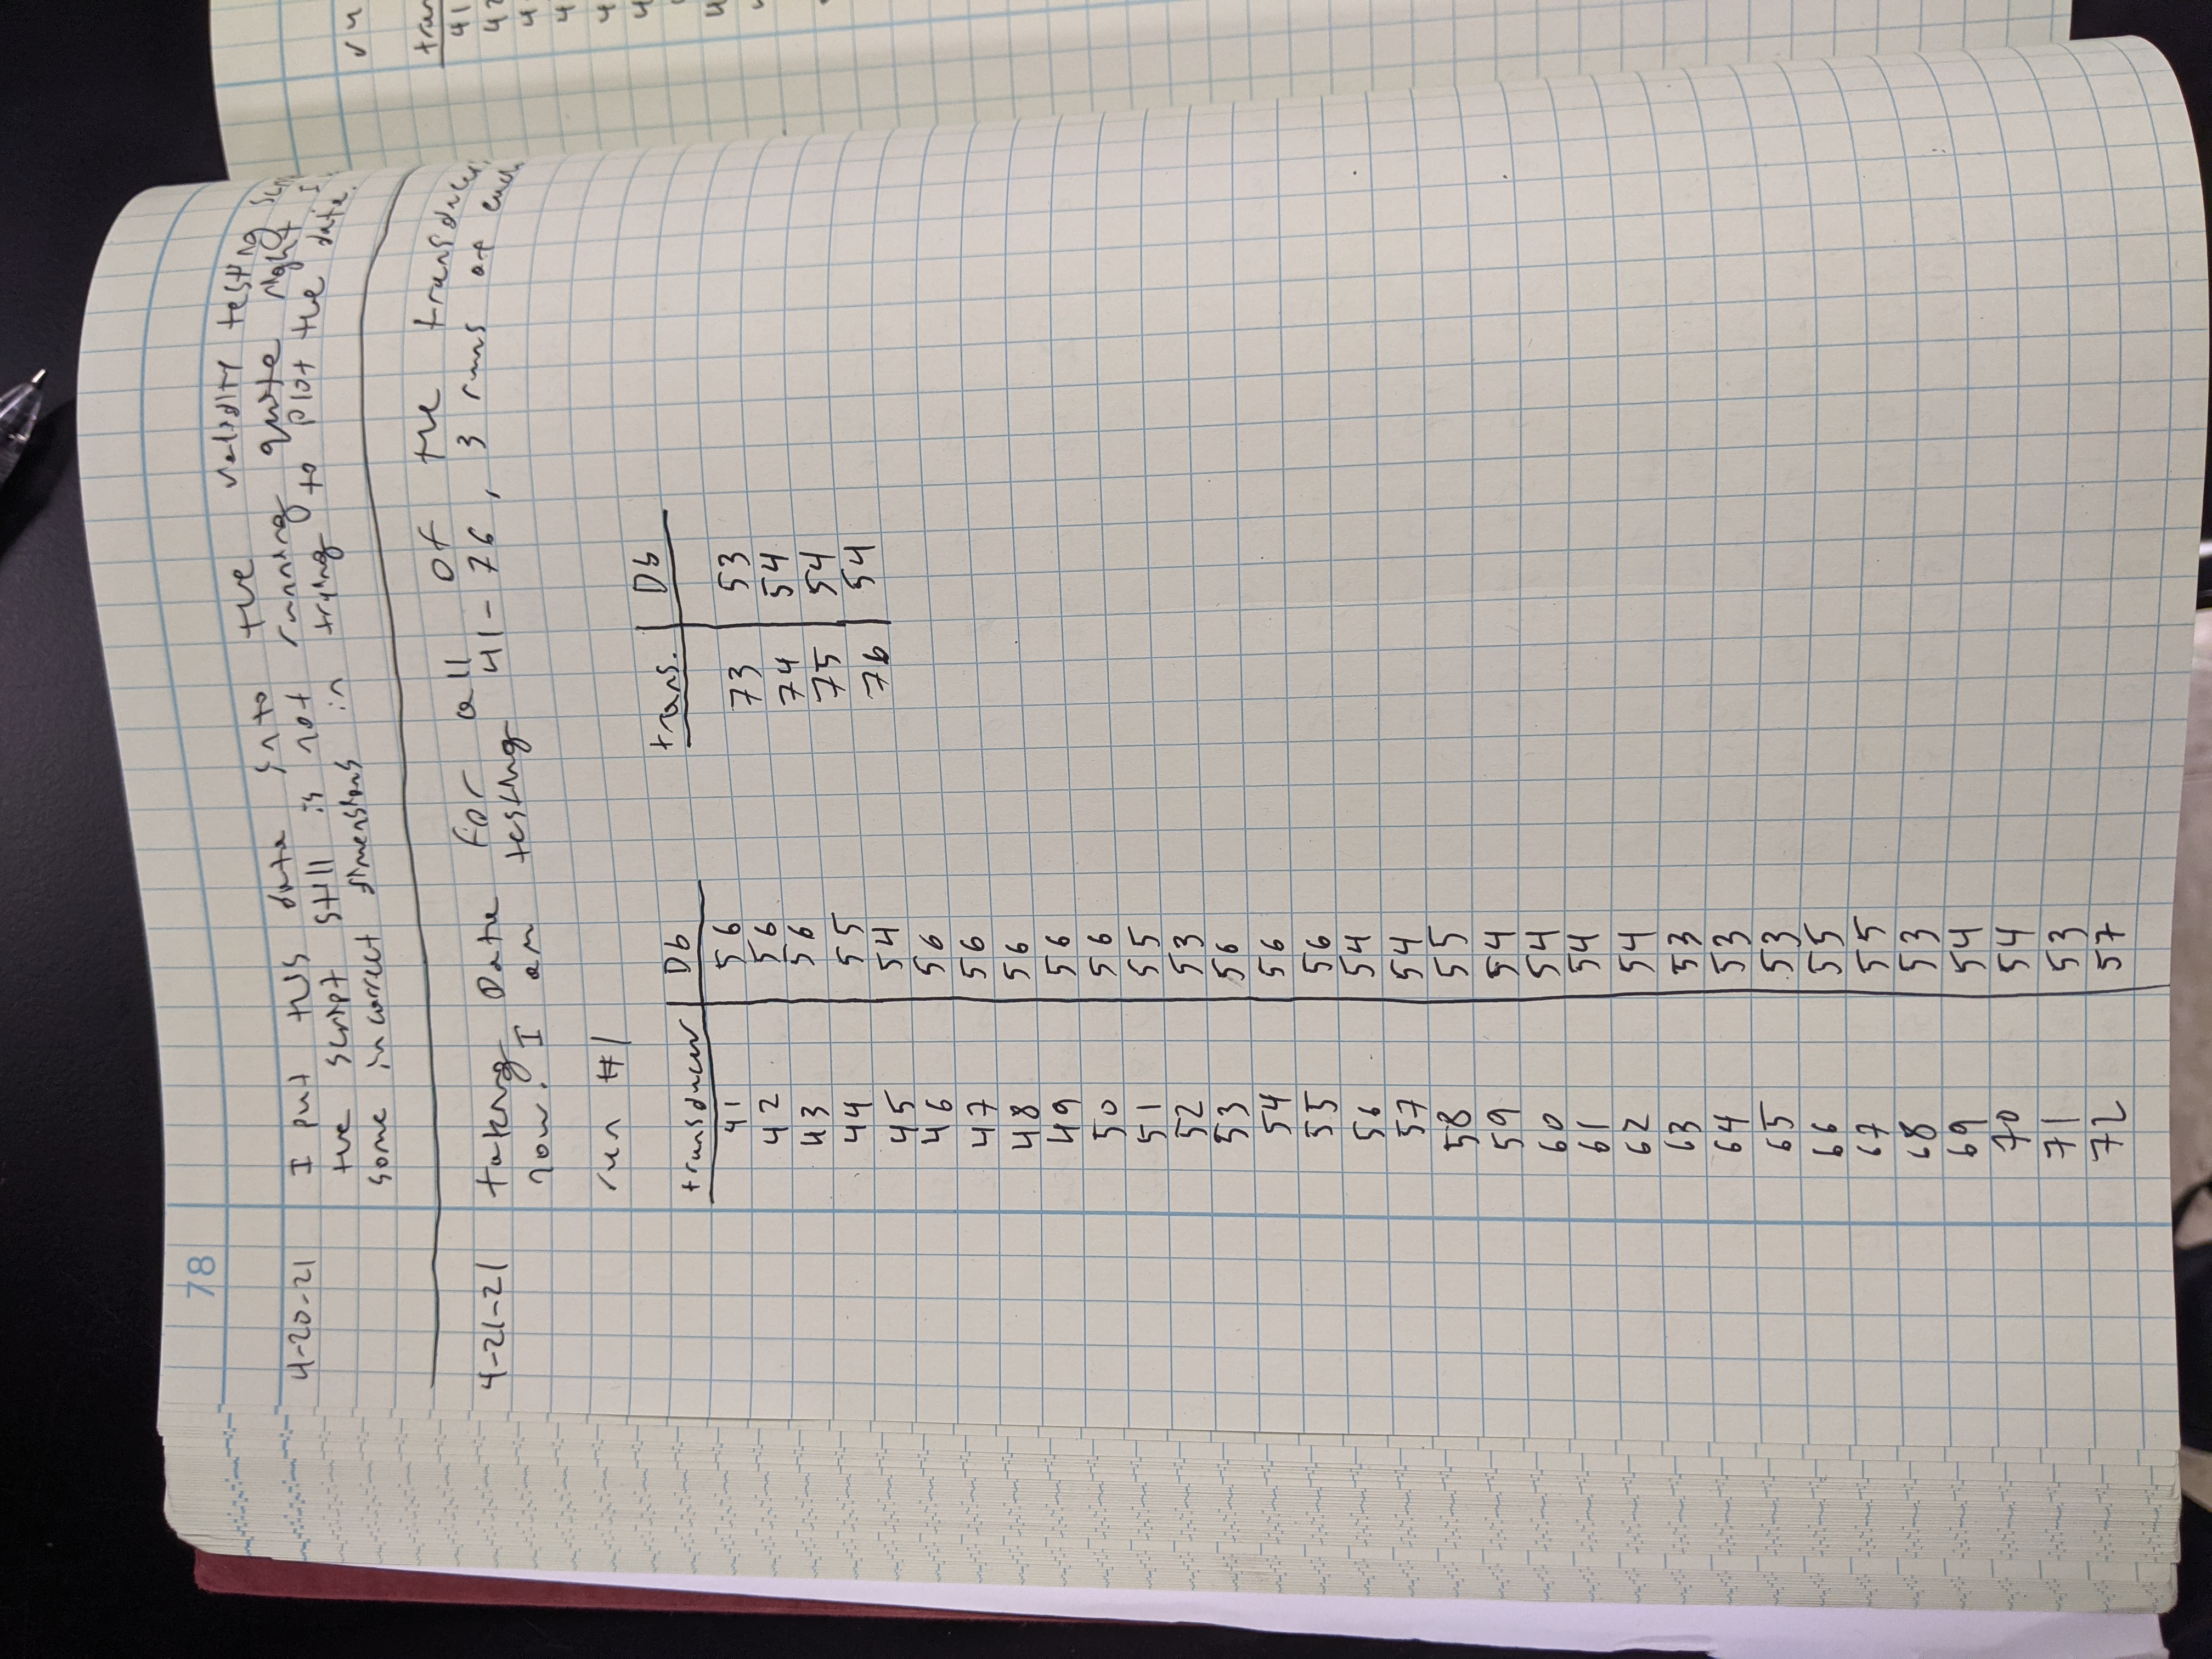 78
4-20-21 I put this data into the validity testing
the script still is not running quite right. I
some incorrect dimensions in trying to plot the data.
4-21-21 taking Data for all of the transducers
now. I am testing 41-76, 3 runs of each
run #1
transducer Db
41 56
42 56
43 56
44 55
45 54
46 56
47 56
48 56
49 56
50 56
51 55
52 53
53 56
54 56
55 56
56 54
57 54
58 55
59 54
60 54
61 54
62 54
63 53
64 53
65 53
66 55
67 55
68 53
69 54
70 54
71 53
72 57
trans. Db
73 53
74 54
75 54
76 54
41